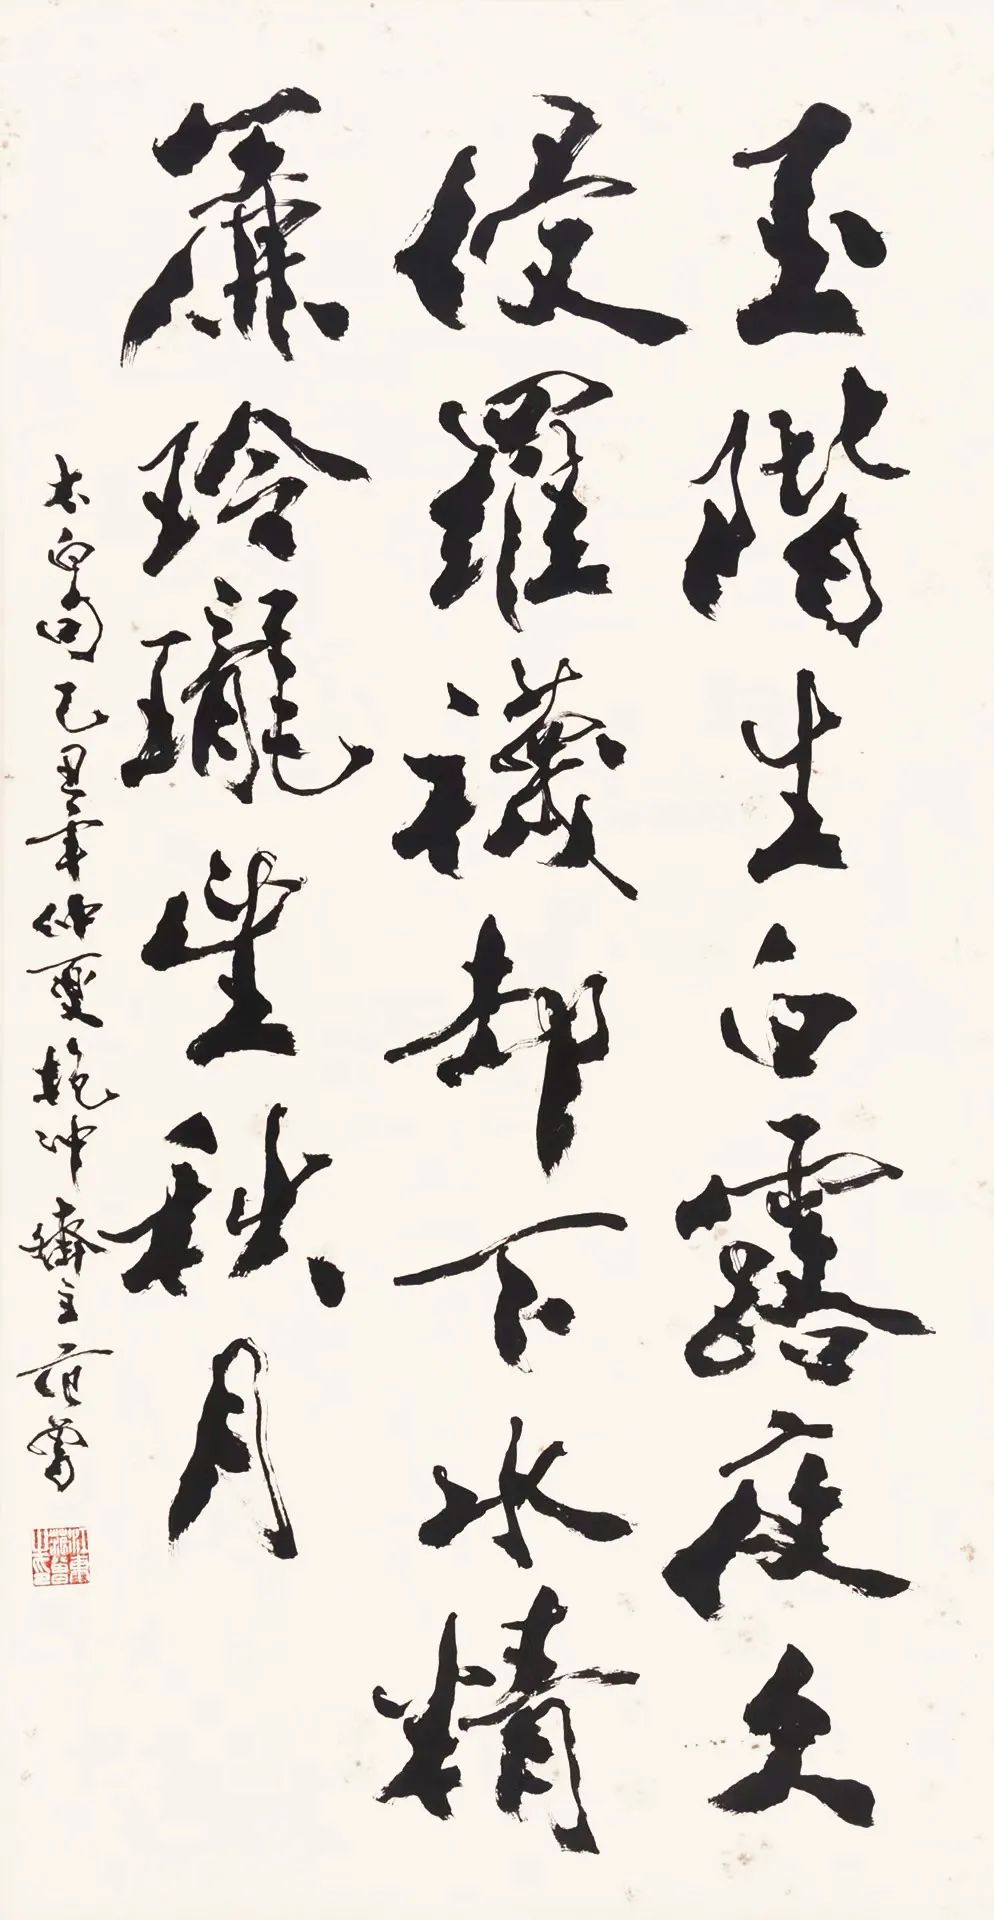 玉階生白露夜久
侵羅襪却下水精
簾玲瓏望秋月
太白句己丑年仲夏抱冲齋主范曾